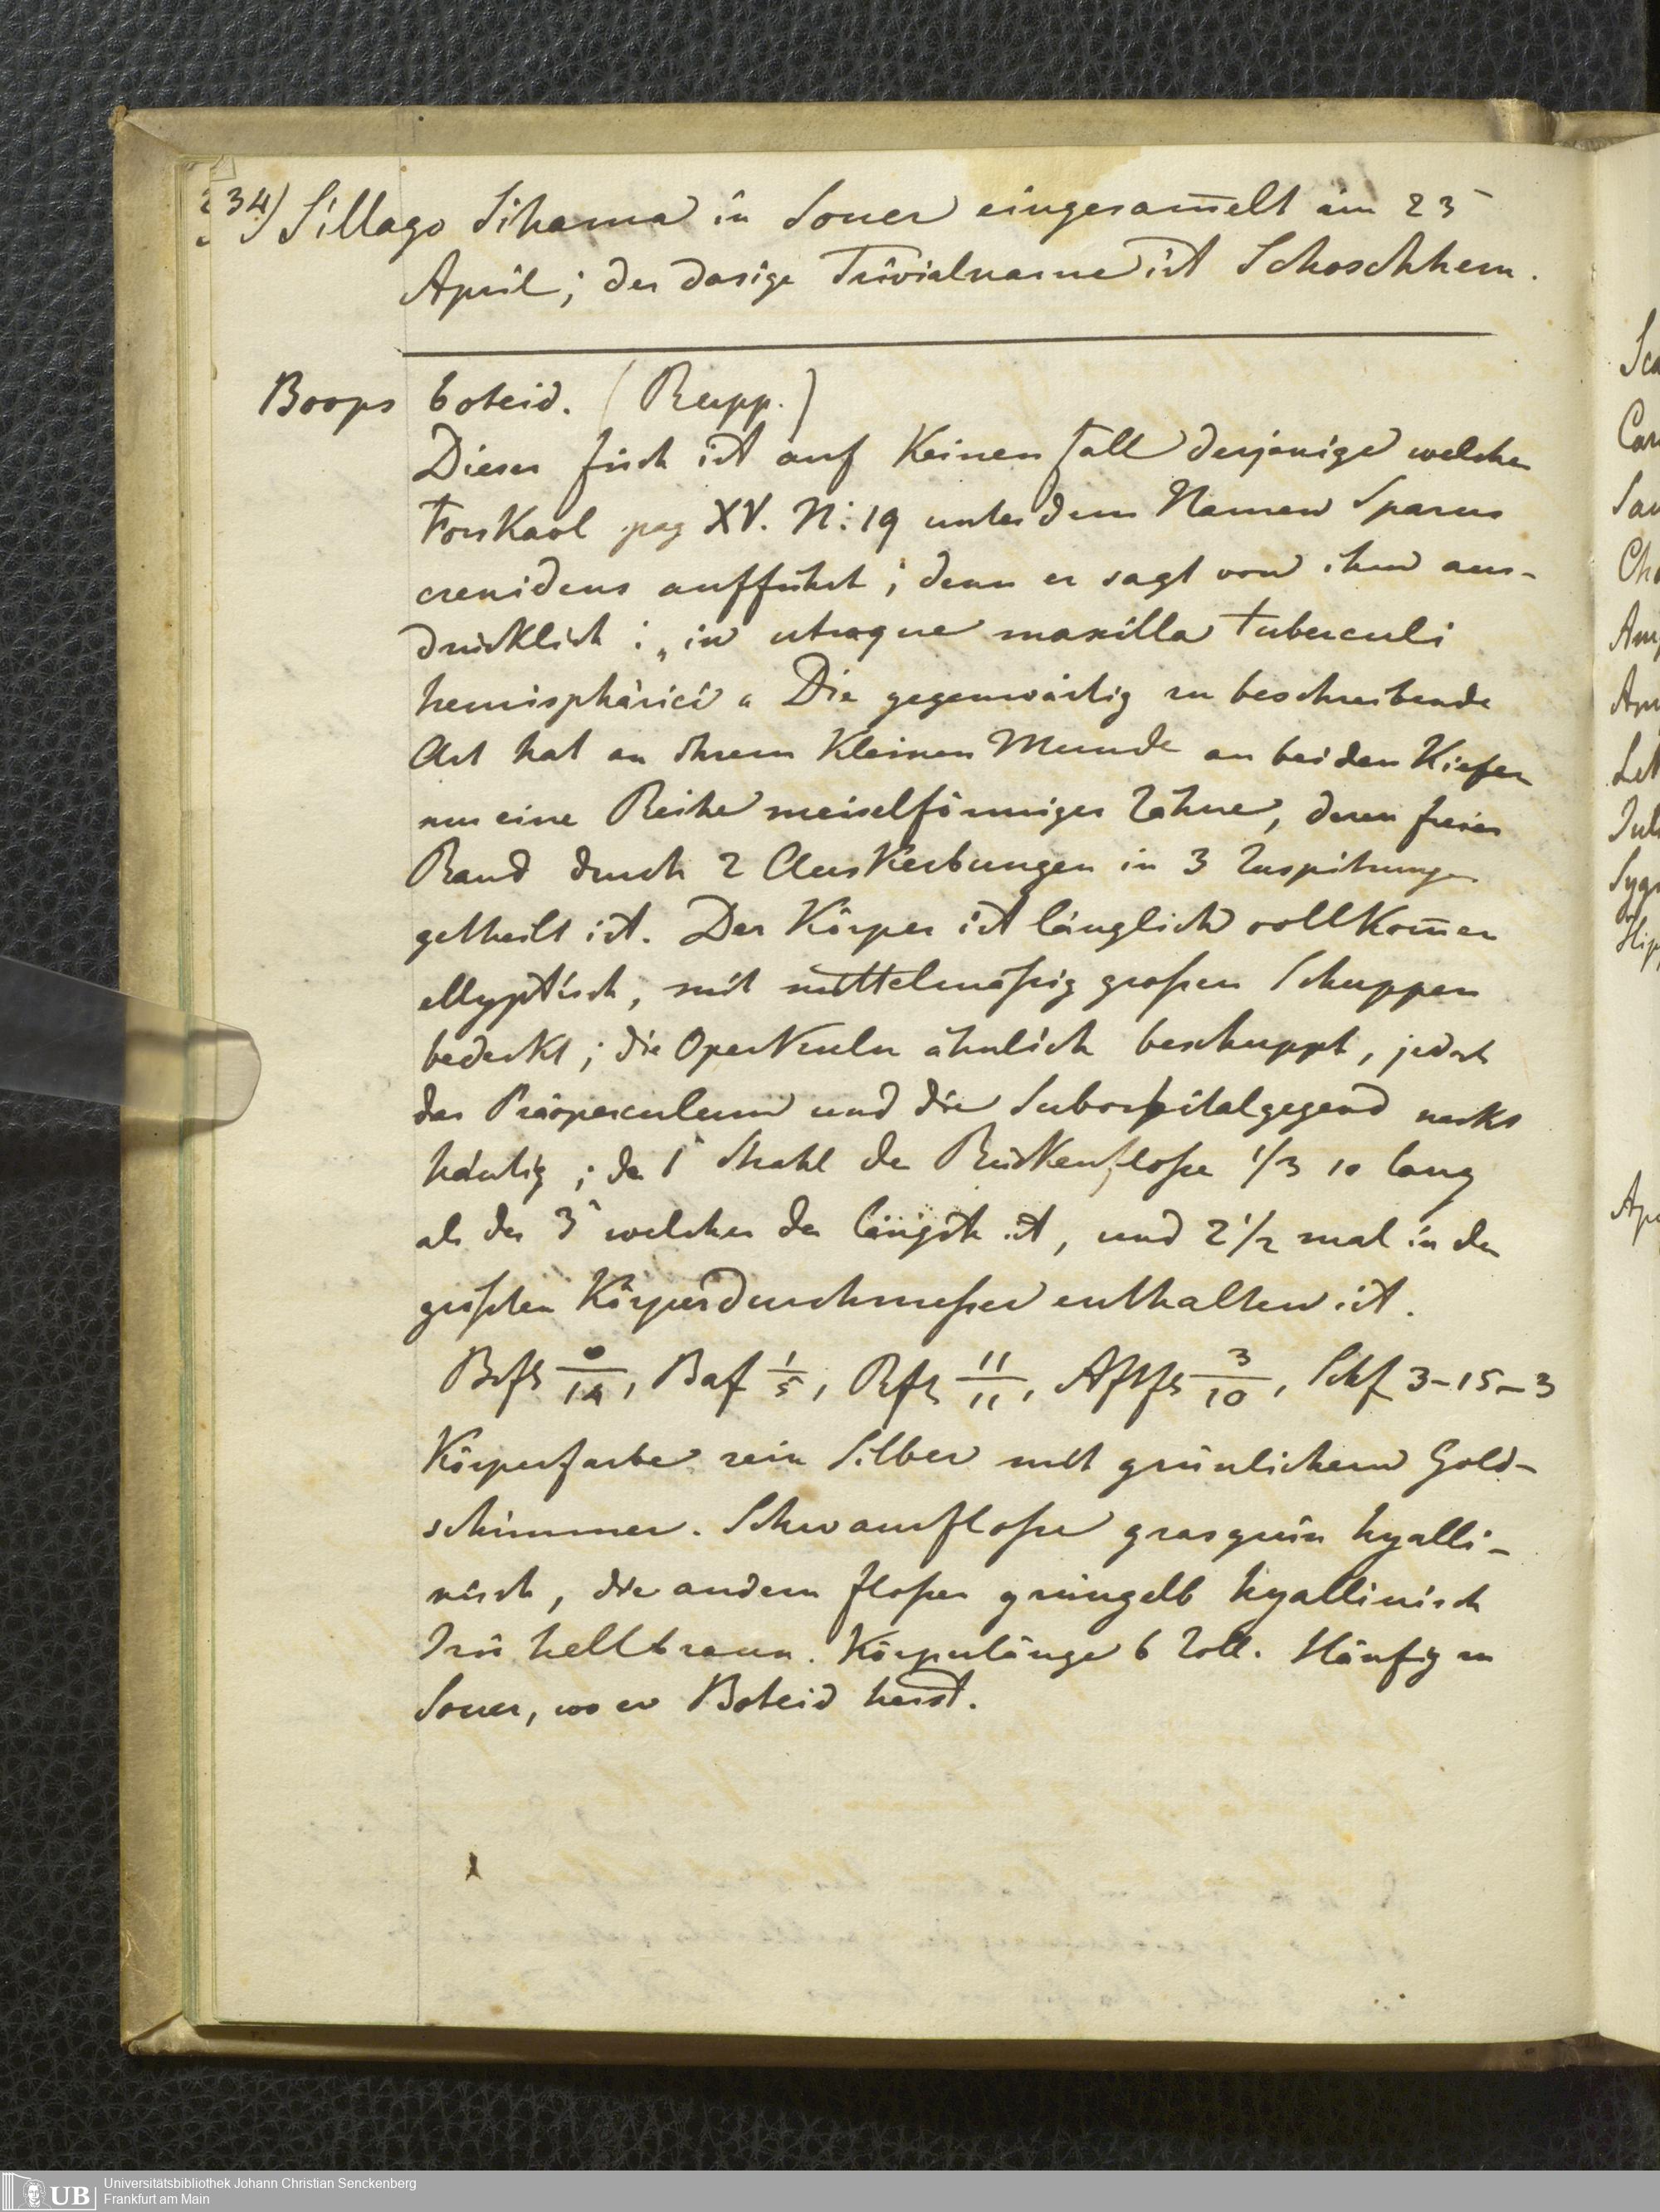 34) Sillago Sihama in Souer eingesam̄elt im 25
April; der dasige Trivialname ist Schoschhem.
Boops boteid. (Rupp.)
Dieser fisch ist auf Keinen fall derjenige welcher
Forskaol pag XV. N: 19 unter dem Namen Sparus
crenidens aufführt; denn er sagt von ihm aus-
drücklich: „in utraque maxilla tuberculi
hemisphärici“ Die gegenwärtig zu beschreibende
Art hat an ihrem Kleinen Munde an beiden Kiefer
nur eine Reihe meiselförmiger Zähne, deren freier
Rand durch 2 AusKerbungen in 3 Zuspitzungen
getheilt ist. Der Körper ist länglich vollKom̄en
ellyptisch, mit mittelmäßig großen Schuppen
bedeckt; die OperKuln ähnlich beschuppt, jedoch
das Präoperculum und die Suborbitalgegend nackt
häutig; der 1 Strahl der RückenfloßE 1/3 so lang
als der 3 welcher der längste ist, und 2 1/2 mal in den
größten Körperdurchmeßer enthalten ist.
Brfl 0/14, Baf 1/5, Rfl 11/11, Aftfl 3/10, Schf 3-15-3
Körperfarbe rein Silber mit grünlichem Gold-
schimmer. Schwanzfloße grasgrün hyalli-
nisch, die andern floßen grüngelb hyallinisch
Iris hellbraun. Körperlänge 6 Zoll. Häufig zu
Souer, wo er Boteid heist.
Universitätsbibliothek Johann Christian Senckenberg
Frankfurt am Main
UB